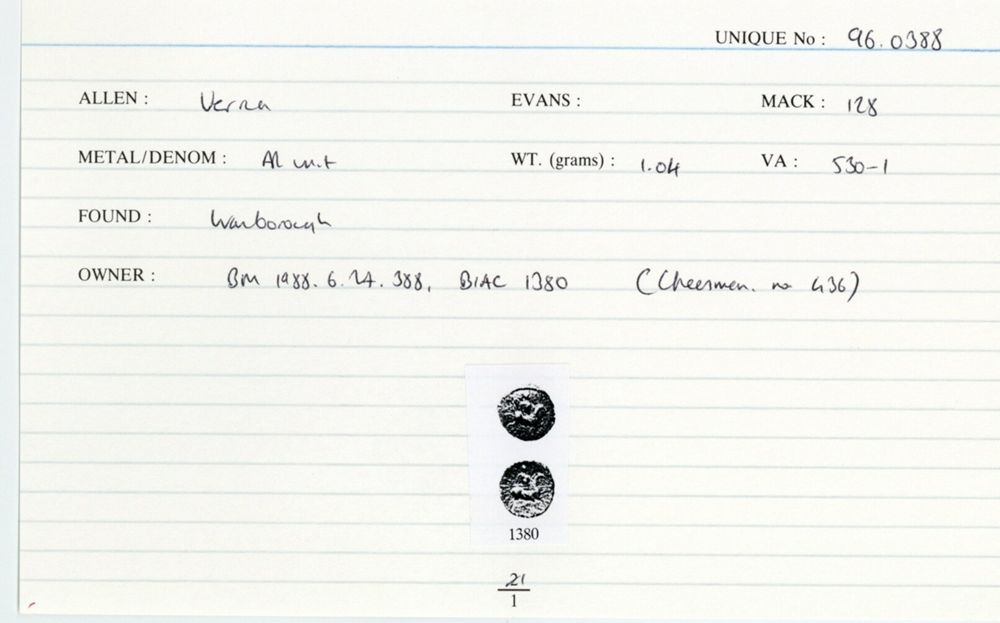 UNIQUE No : 96.0388
ALLEN : Verica EVANS : MACK : 128
METAL/DENOM : AR unit WT. (grams) : 1.04 VA : 530-1
FOUND : Wanborough
OWNER : BM 1988. 6. 27. 388, BIAC 1380 (Cheesman. no 436)
1380
21
1